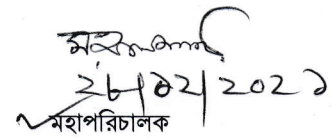 ২৮/০২/২০২১
মহাপরিচালক